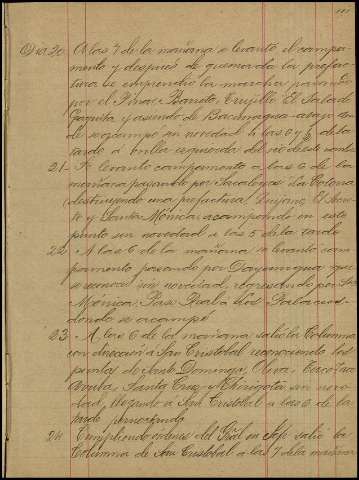 Dia 20 A las 7 de la mañana se levantó el campa-
mento y despues de quemada la prefec-
tura se emprendió la marcha pasando
por el Pinar, Barreto, Trujillo El Salado
Gaquita y
de se acampó sin novedad á las 6 y ½ de la
tarde á orilla izquierda del rio de este nombre
21 - Se levantó campamento a las 6 de la
mañana pasando por La Victoria
(destruyendo una prefectura) Quijano, El
y Santa Mónica, acampando en este
punto sin novedad a las 5 de la tarde
22 - A las 6 de la mañana se levantó cam-
pamento pasando por Dayaniguas que
se reconoció sin novedad, regresando por Sta
Mónica, Paso Real á Los Palacios
donde se acampó
23 - A las 6 de la mañana salió la Columna
con direccion á San Cristobal reconociendo los
puntos de Santo Domingo, Oliva,
Santa Cruz y Chirigota sin nove
dad, llegando á San Cristobal a las 6 de la
tarde pernoctando
24 Cumpliendo órdenes del Gral en Jefe salió la
Columna de San Cristobal a las 7 de la mañana